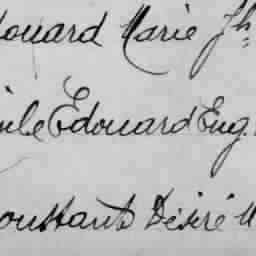 douard Marie Jh
ile Edouard Eug.
onstant Désiré M